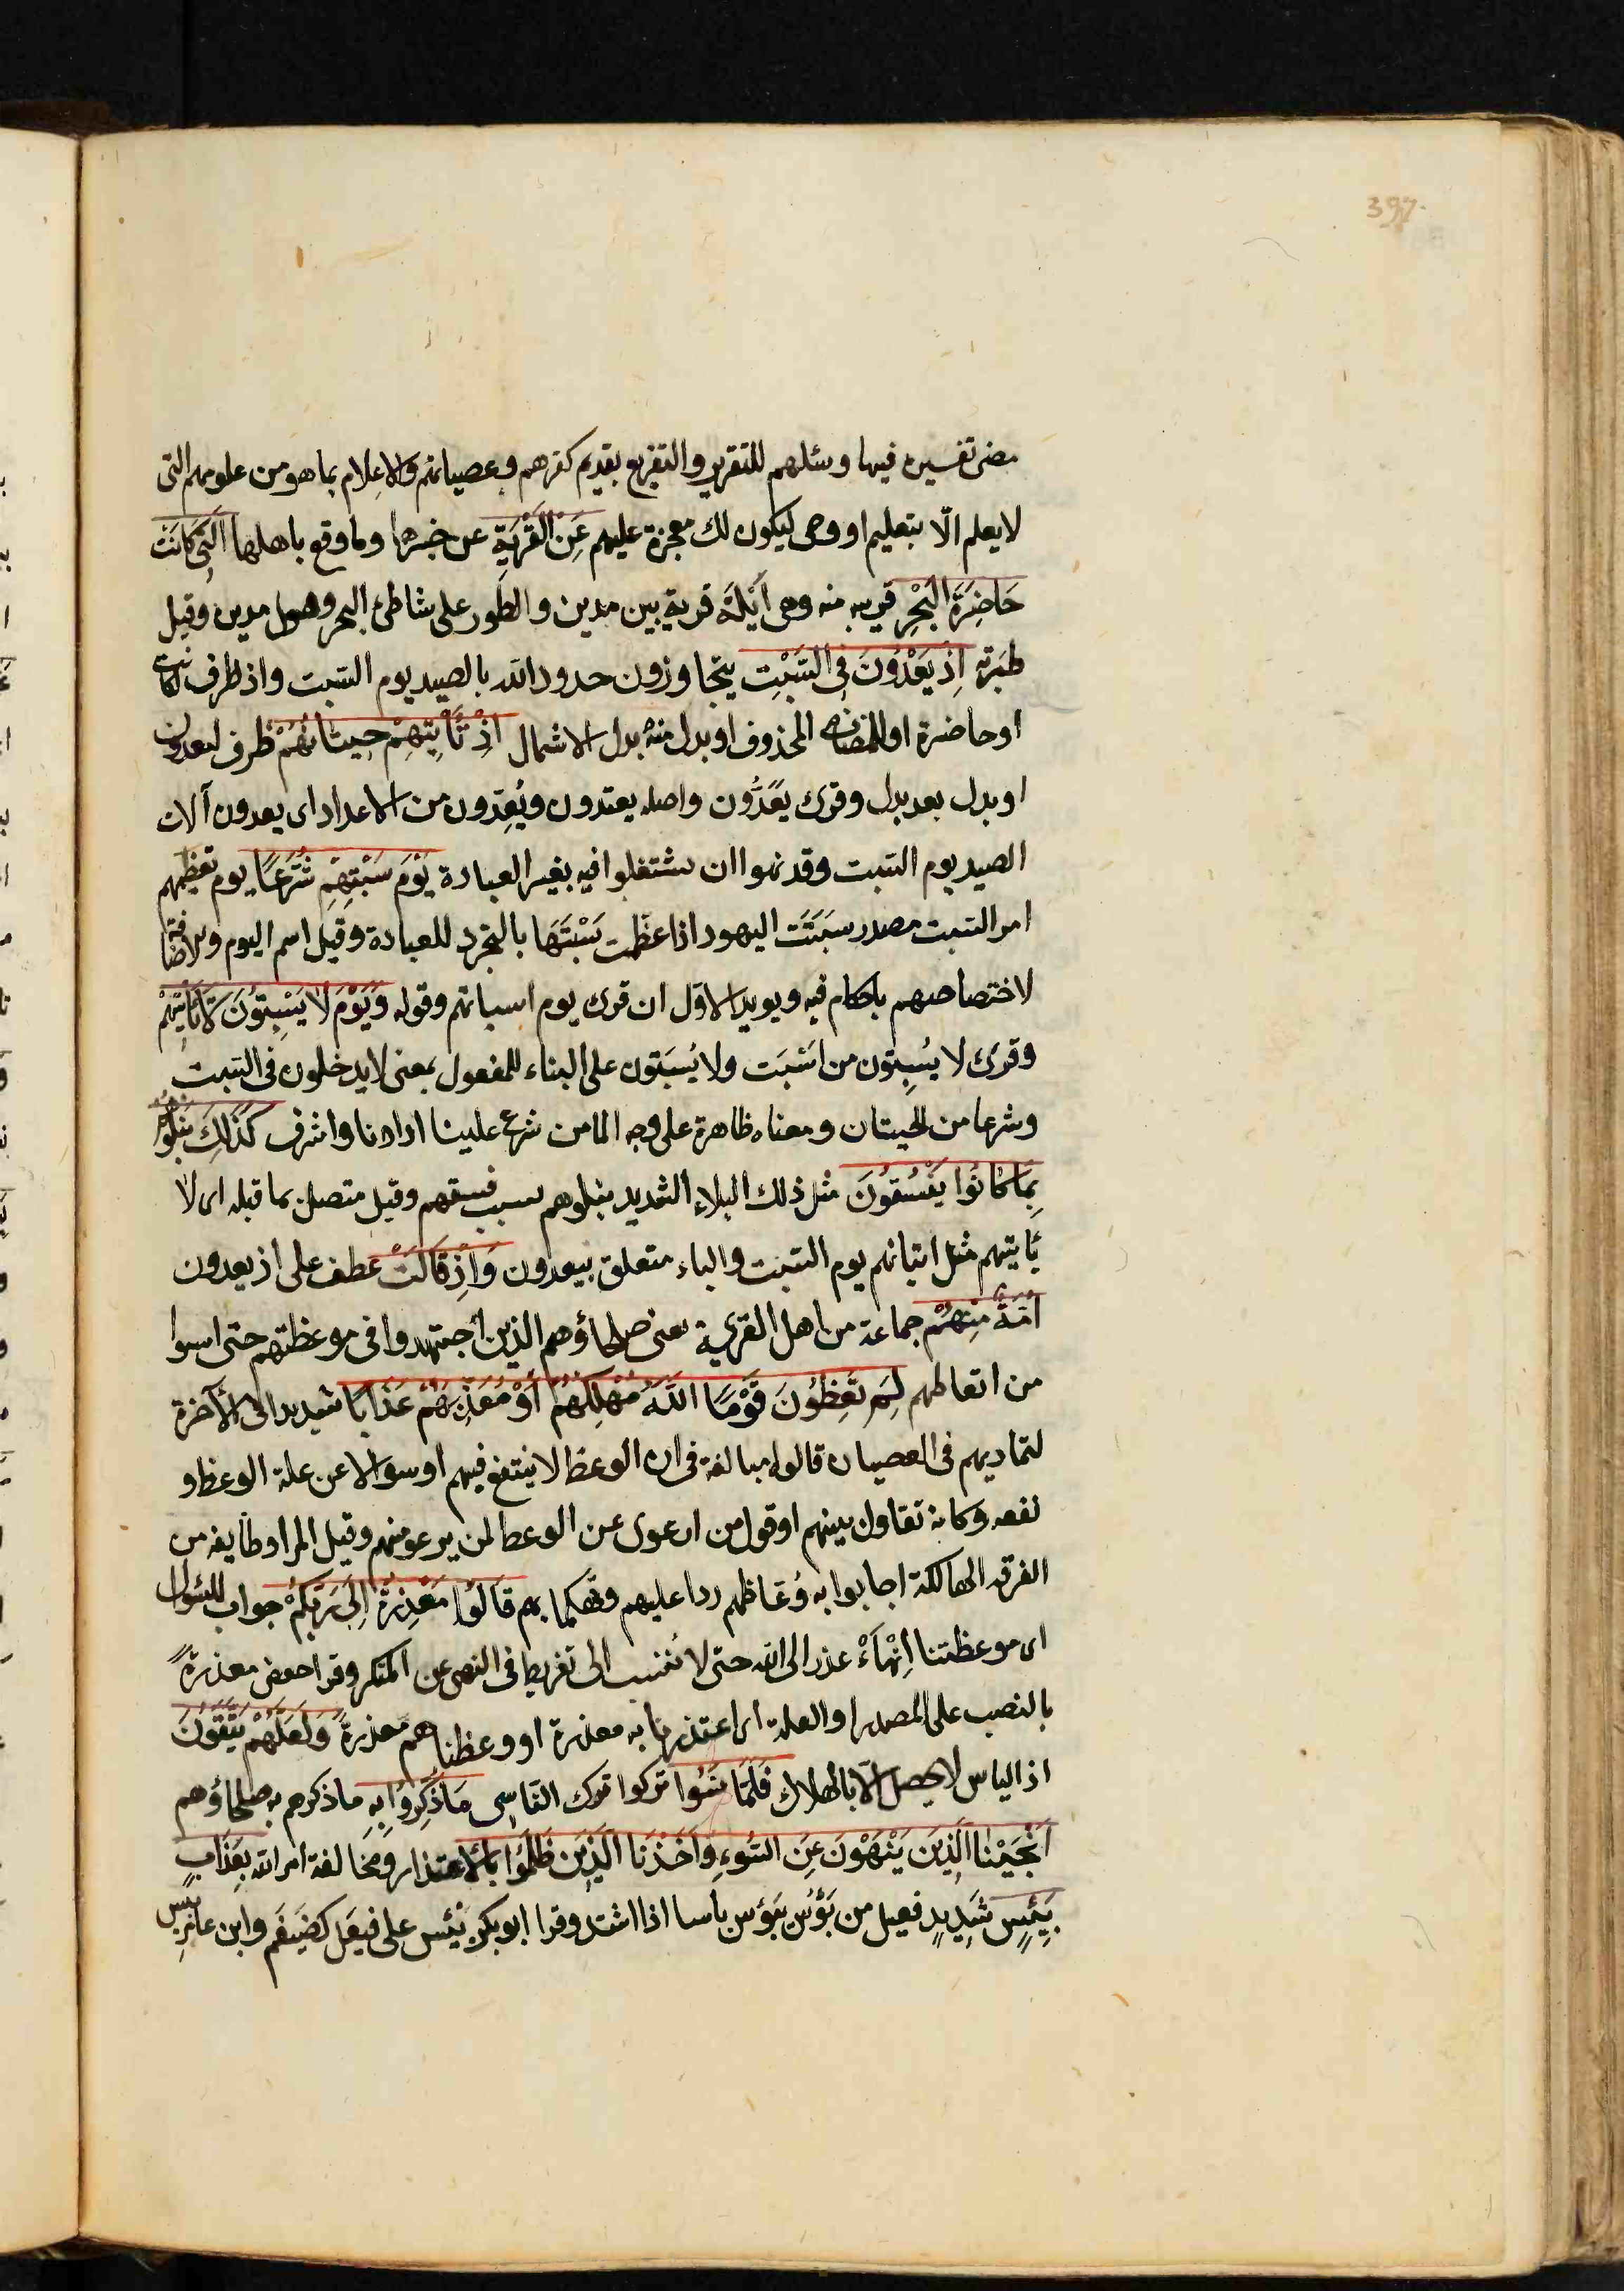 397
مضى تفسيره فيها وسئلهم للتقرير والتقريع بقديم كفرهم وعصيانهم والاعلام بما هو من علومهم التى
لا يعلم الّا بتعليم او وحى ليكون لك معجزة عليهم عَنِ الْقَرْيَةِ عن خبرها وما وقع باهلها الَّتِى كَانَتْ
حَاضِرَةَ الْبَحْرِ قريبه منه وهى اَيْلَة قرية بين مدين والطور على شاطئ البحر وقيل مدين وقيل
طبرته اِذْ يَعْدُونَ فِى السَّبْتِ يتجاوزون حدود الله بالصيد يوم السبت واذ ظرف لكانت
او حاضرة او للمضاف المحذوف او بدل منه بدل الاشتمال اِذْ تَأْتِيهِمْ حِيتَانُهُمْ ظرف ليعدون
او بدل بعد بدل وقرئ يَعَدُّون واصله يعتدون ويُعِدّون من الاعداد اى يعدون آلات
الصيد يوم السبت وقد نهوا ان يشتغلوا فيه بغير العبادة يَوْمَ سَبْتِهِمْ شُرَّعًا يوم تعظيمهم
امر السبت مصدر سَبَتَت اليهود اذا عظمت سَبْتَهَا بالتجرد للعبادة وقيل اسم اليوم والاضافة
لاختصاصهم باحكام فيه ويويد الاوّل ان قرئ يوم اسباتهم وقوله وَيَوْمَ لَا يَسْبِتُونَ لَا تَأْتِيهِمْ
وقرئ لا يُسبِتون من اَسْبَت ولا يُسبَتون على البناء للمفعول بمعنى لا يدخلون فى السبت
وشرعا من الحيتان ومعناه ظاهرة على وجه الما من شرع علينا اذا دنا واشرف كَذَلِكَ نَبْلُوهُمْ
بِمَا كَانُوا يَفْسُقُونَ مثل ذلك البلاء الشديد نبلوهم بسبب فسقهم وقيل متصل بما قبله اى لا
تأتيهم مثل اتيانهم يوم السبت والباء متعلق بيعدون وَاِذْ قَالَتْ عطف على اذ يعدون
اُمَّةٌ مِنْهُمْ جماعة من اهل القرية يعنى صلحاؤهم الذين اجتهدوا فى موعظتهم حتى ايسوا
من اتعاظهم لِمَ تَعِظُونَ قَوْمًا اللَّهُ مُهْلِكُهُمْ اَوْ مُعَذِّبُهُمْ عَذَابًا شَدِيدًا فى الآخرة
لتماديهم فى العصيان قالوا مبالغة فى ان الوعظ لا ينتفع فيهم او سوالا عن علة الوعظ و
نفعه وكانه تقاول بينهم او قول من ارعوى عن الوعظ لمن يرعو منهم وقيل المراد طايفه من
الفرقه الهالكة اجابوا به وُعّاظهم ردا عليهم وتهكما بهم قَالُوا مَعْذِرَةً اِلَى رَبِّكُمْ جواب للسؤال
اى موعظتنا اِنْهَاء عذر الى الله حتى لا ننسب الى تفريط فى النهى عن المنكر وقرا حفص معذرةً
بالنصب على المصدر او العلة اى اعتذرنا به معذرة او وعظناهم معذرةً وَلَعَلَّهُمْ يَتَّقُونَ
اذ الياس لا يحصل الّا بالهلاك فَلَمَّا نَسُوا تركوا ترك الناسى مَا ذُكِّرُوا بِهِ ما ذكرهم به صلحاؤهم
اَنْجَيْنَا الَّذِينَ يَنْهَوْنَ عَنِ السُّوءِ وَاَخَذْنَا الَّذِينَ ظَلَمُوا بالاعتذار ومخالفة امر الله بِعَذَابٍ
بَئِيسٍ شديدٍ فعيل من بَؤُس يبؤس باسا اذا اشتد وقرا ابو بكر بَيْئَس على فيعَل كضَيغَم وابن عامر بِئْس